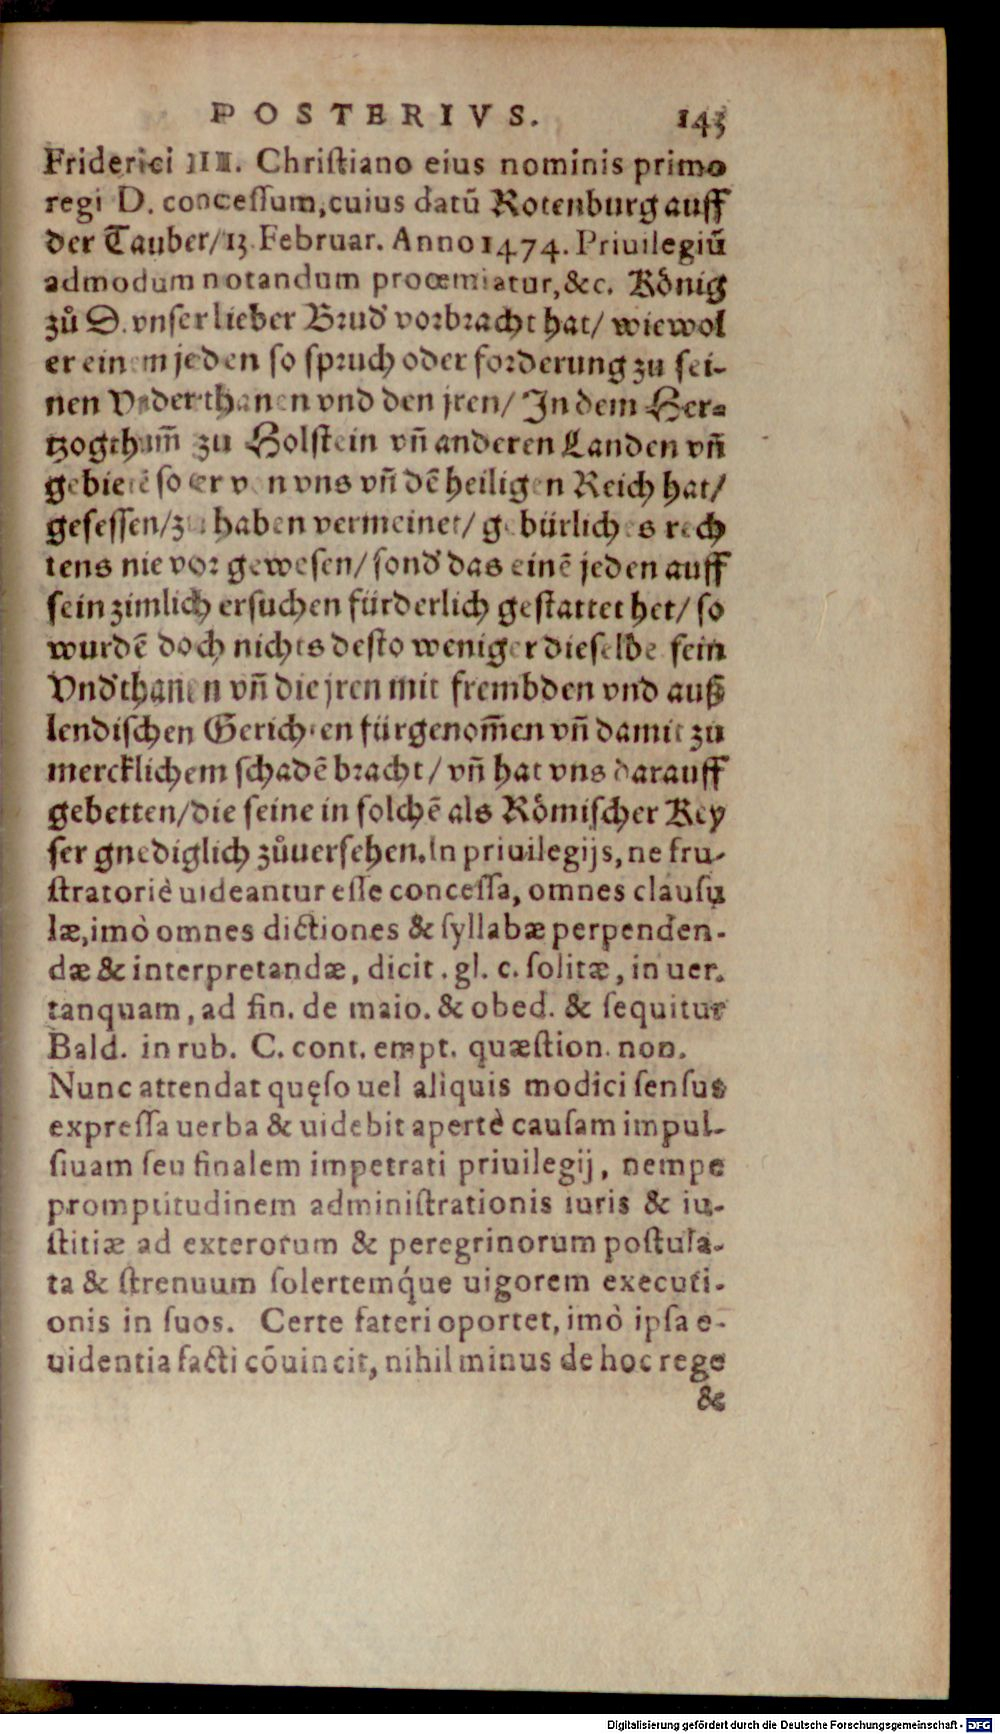 POSTERIVS. 143
Friderici III. Christiano eius nominis primo
regi D. concessum, cuius datũ Rotenburg auff
der Tauber/ 13. Februar. Anno 1474. Priuilegiũ
admodum notandum procemiatur, &c. Kónig
zů D. vnser lieber Brud' vorbracht hat/ wiewol
er einem jeden so spruch oder forderung zu sei-
nen Vnderthanen vnd den jren/ In dem Her=
tzogthum̃ zu Holstein vñ anderen Landen vñ
gebietẽ so er von vns vñ dẽ heiligen Reich hat/
gesessen/ zu haben vermeinet/ gebürliches rech
tens nie vor gewesen/ sond' das einẽ jeden auff
sein zimlich ersuchen fürderlich gestattet het/ so
wurdẽ doch nichts desto weniger dieselbe sein
Vnd'thanen vñ die jren mit frembden vnd auß
lendischen Gerichten fürgenom̃en vñ damit zu
mercklichem schadẽ bracht/ vñ hat vns darauff
gebetten/ die seine in solchẽ als Rőmischer Key
ser gnediglich zůuersehen. In priuilegijs, ne fru-
stratoriè uideantur esse concessa, omnes clausu
læ, imò omnes dictiones & syllabæ perpenden-
dæ & interpretandæ, dicit. gl. c. solitæ, in uer.
tanquam, ad fin. de maio. & obed. & sequitur
Bald. in rub. C. cont. empt. quæstion. non.
Nunc attendat quęso uel aliquis modici sensus
expressa uerba & uidebit apertè causam impul-
siuam seu finalem impetrati priuilegij, nempe
promptitudinem administrationis iuris & iu-
stitiæ ad exterorum & peregrinorum postula-
ta & strenuum solertemq́ue uigorem executi-
onis in suos. Certe fateri oportet, imò ipsa e-
uidentia facti cõuincit, nihil minus de hoc rege
&
Digitalisierung gefördert durch die Deutsche Forschungsgemeinschaft - DFG